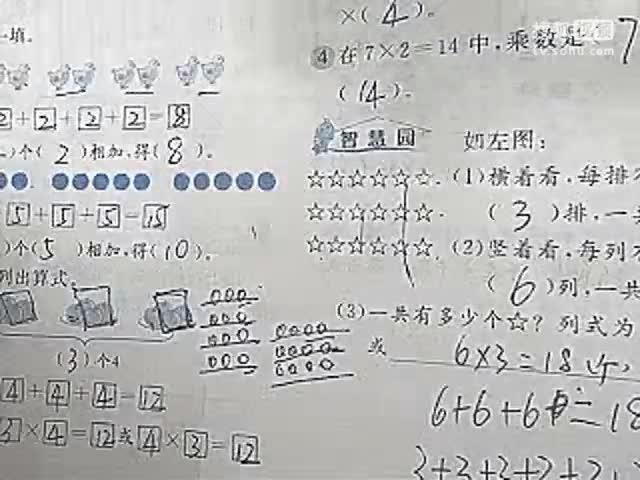 一填。
2+2+2+2=8
)个(2)相加,得(8)。
5+5+5=15
)个(5)相加,得(10)。
列出算式。
(3)个4
4+4+4=12
3×4=12或4×3=12
×(4)。
④在7×2=14中,乘数是
7
(14)。
智慧园
如左图:
☆☆☆☆☆☆
☆☆☆☆☆☆
☆☆☆☆☆☆
(1)横着看,每排
(3)排,一
(2)竖着看,每列
(6)列,一共
(3)一共有多少个☆?列式为
或
6×3=18
6+6+6=18
tv.sohu.com